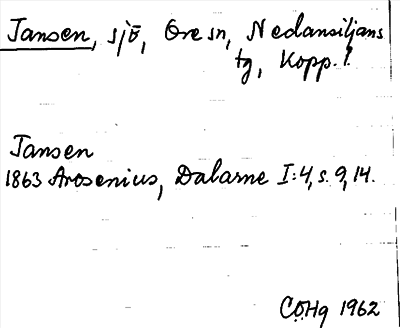 Jansen, sjö, Ore sn, Nedansiljans
tg, Kopp. l.
Jansen
1863 Arosenius, Dalarne I:4, s. 9, 14.
COHg 1962